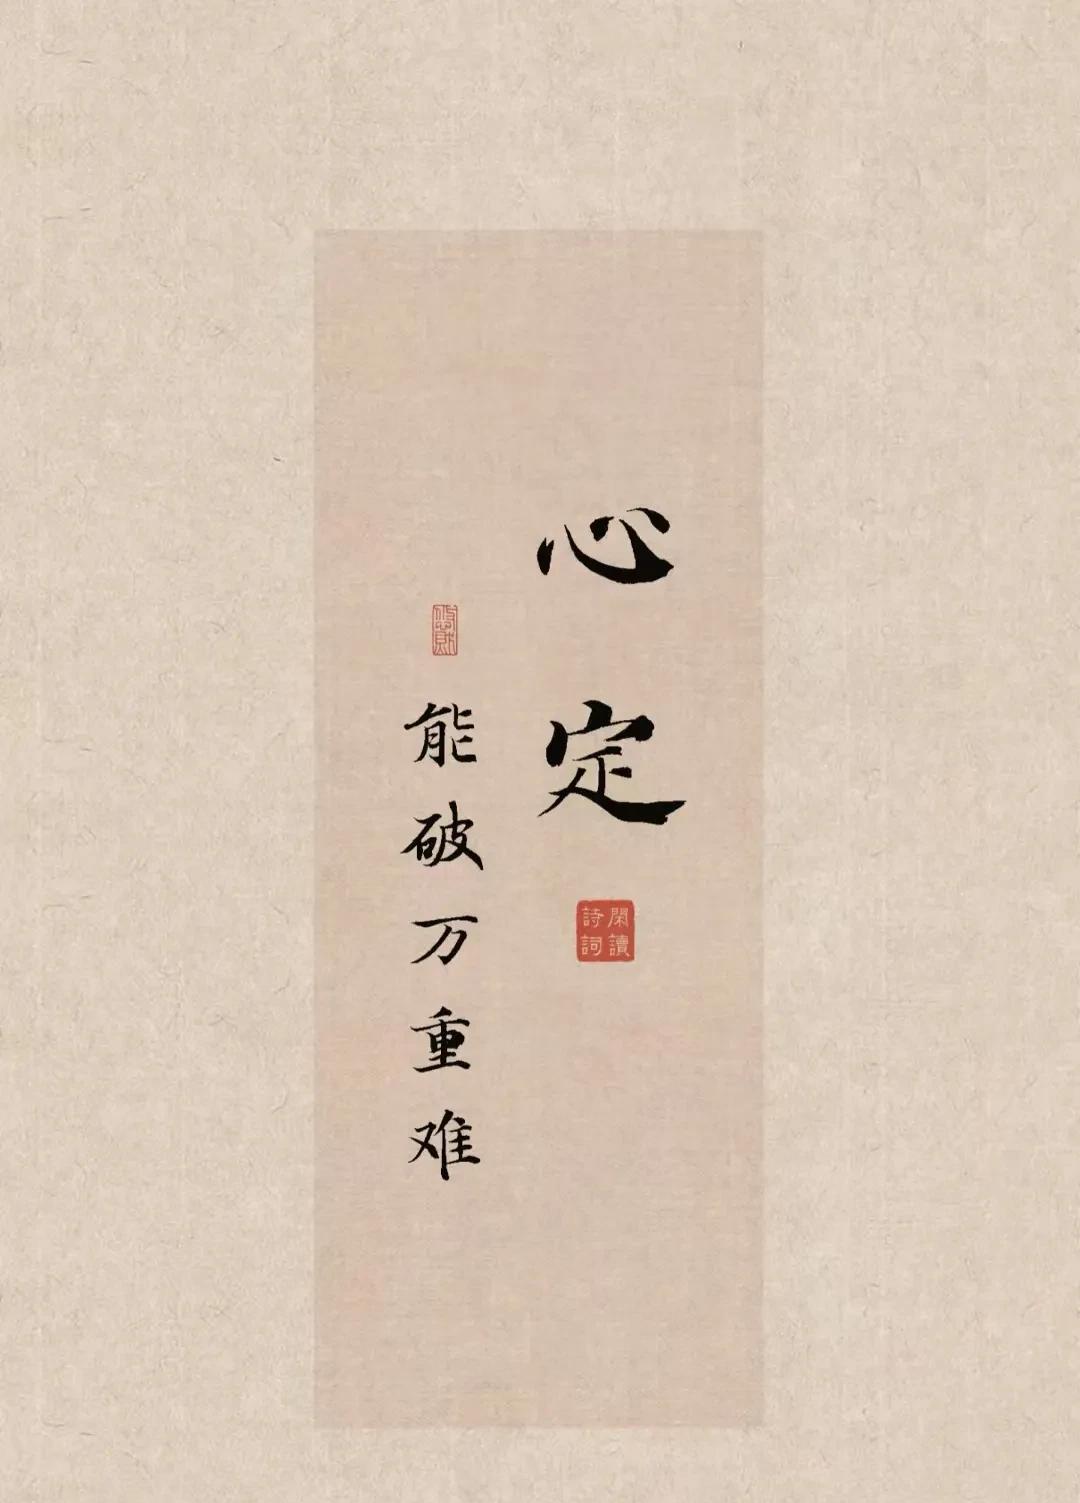 心定
閑讀
詩詞
能破万重难